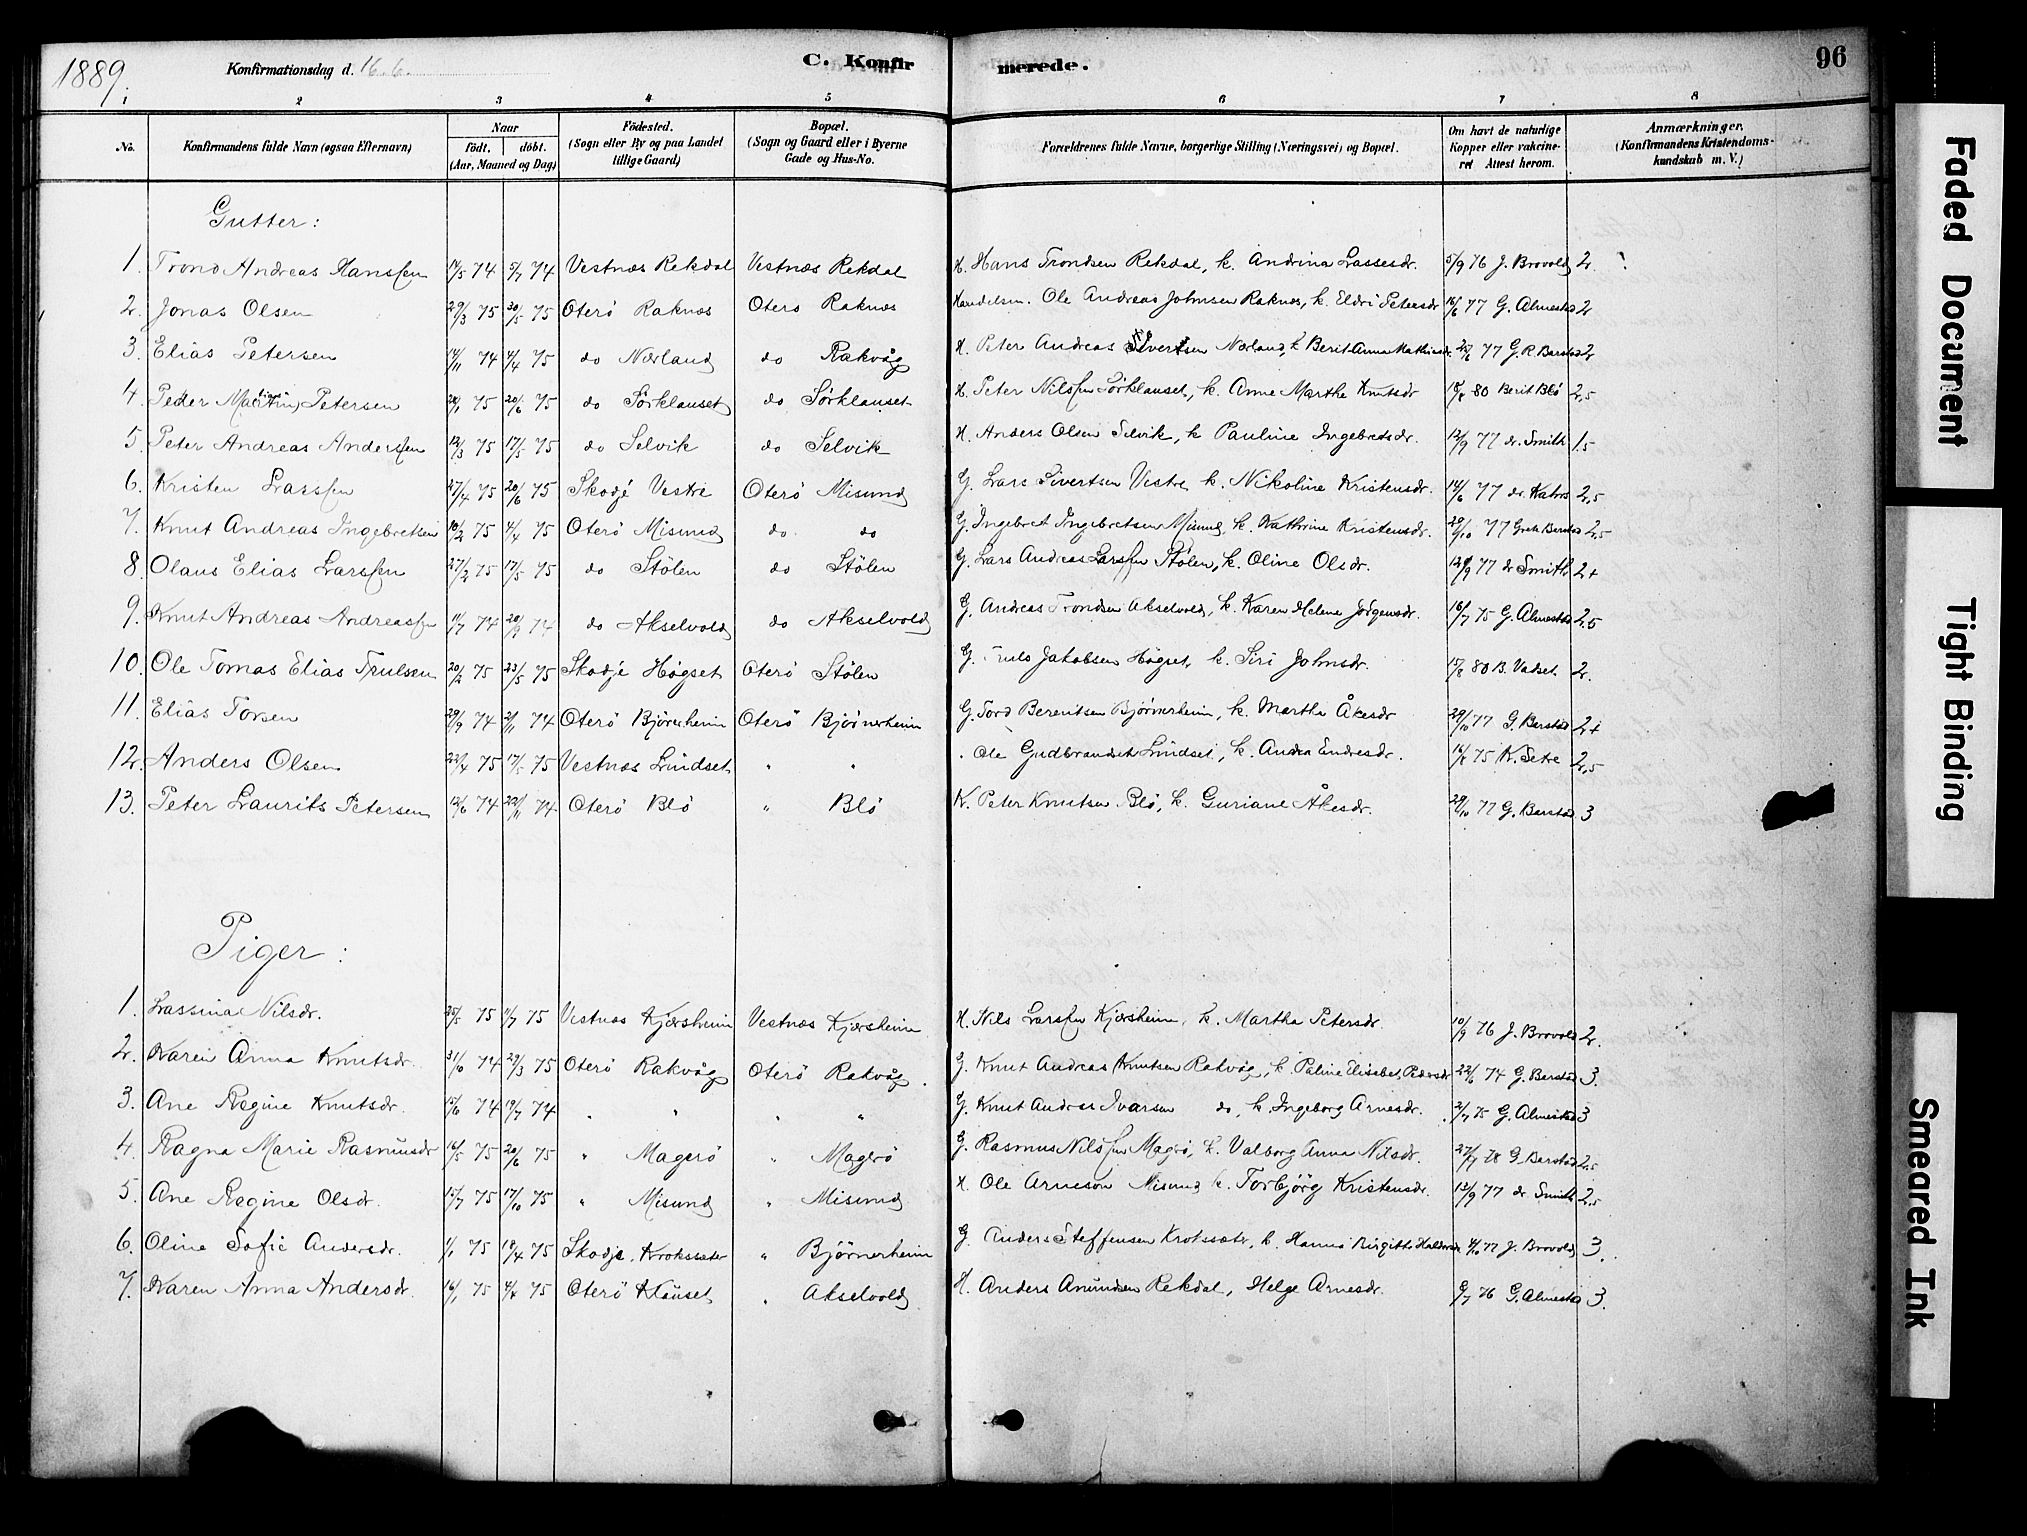 1889. Konfirmationsdag d. 16.6. C. Konfirmerede. 96
1 2 3 4 5 6 7 8
No. Konfirmandens fulde Navn (ogsaa Efternavn) Naar Födt. döbt. (Aar, Maaned og Dag) Födested. (Sogn eller By og paa Landet tillige Gaard) Bopæl. (Sogn og Gaard eller i Byerne Gade og Hus-No. Forældrenes fulde Navne, borgerlige Stilling (Næringsvei) og Bopæl. Om havt de naturlige Kopper eller vakcineret Attest herom. Anmærkninger. (Konfirmandens Kristendomskundskab m. V.)
Gutter:
1. Trond Andreas Hanssen 17/5 74 5/7 74 Vestnæs Rekdal Vestnæs Rekdal H. Hans Trondsen Rekdal, k. Andrina Lassesdr. 5/9 76 J. Brovold 2.
2. Jonas Olsen 29/3 75 30/5 75 Oterö Raknæs Oterö Raknæs Handelsm. Ole Andreas Johnsen Raknæs, k. Eldri Petersdr 16/6 77 G. Almestad 2
3. Elias Petersen 14/11 74 4/4 75 do Nærland do Rakvåg H. Peter Andreas Sivertsen Nærland, k Berit Anna Mathiasdr. 25/6 77 G. R Barstad 2
4. Peder Martin Petersen 24/1 75 20/6 75 do Sörklauset do Sörklauset H. Peter Nilssen Sörklauset, k. Anne Marthe Knutsdr 18/8 80 Berit Blö 2,5
5. Peter Andreas Anderssen 12/3 75 17/5 75 do Selvik do Selvik H. Anders Olsen Selvik, k Pauline Ingebretsdr. 12/9 77 dr. Smith 1,5
6. Kristen Larssen 27/4 75 20/6 75 Skodje Vestre Oterö Misund G. Lars Sivertsen Vestre k. Nikoline Kristensdr. 14/6 77 dr. Kahrs 2,5
7. Knut Andreas Ingebretsen 10/2 75 4/4 75 Oterö Misund do do G. Ingebret Ingebretsen Misund, k. Kathrine Kristensdr. 29/10 77 Grete Barstad 2,5
8. Olaus Elias Larssen 27/2 75 17/5 75 do Stölen do Stölen G. Lars Andreas Larssen Stölen, k. Oline Olsdr. 12/9 77 dr Smith 2+
9. Knut Andreas Andreassen 11/7 74 20/9 74 do Akselvold do Akselvold G. Andreas Trondsen Akselvold, k. Karen Helene Jörgensdr. 16/7 75 G. Almestad 2,5
10. Ole Tomas Elias Trulsen 20/2 75 23/5 75 Skodje Högset Oterö Stölen G. Truls Jakobsen Högset, k. Siri Johnsdr. 15/8 80 B. Vadset 2.
11. Elias Torsen 29/9 74 2/11 74 Oterö Björnerheim Oterö Björnerheim G. Tord Berentsen Björnerheim, k. Martha Åkesdr 29/10 77 G Barstad 2+
12. Anders Olsen 22/4 75 17/5 75 Vestnæs Lindset " " Ole Gudbrandsen Lindset, k. Andrea Endresdr. 16/8 75 K. Setre 2,5
13. Peter Laurits Petersen 12/6 74 22/11 74 Oterö Blö " Blö K. Peter Knutsen Blö, k. Guriane Åkesdr. 29/10 77 G. Barstad 3
Piger:
1. Lassina Nilsdr. 25/5 75 11/7 75 Vestnæs Kjersheim Vestnæs Kjersheim H. Nils Larssen Kjersheim, k. Martha Petersdr. 10/9 76 J. Brovold 2.
2. Karen Anna Knutsdr. 31/10 74 29/3 75 Oterö Rakvåg Oterö Rakvåg. G. Knut Andreas Knutsen Rakvåg, k. Paline Elisabet Pedersdr 22/6 74 G. Barstad 3.
3. Ane Regine Knutsdr. 15/6 74 19/7 74 " " " " G. Knut Andreas Ivarsen do, k. Ingeborg Arnesdr. 2/7 75 G. Almestad 3
4. Ragna Marie Rasmusdr 16/5 75 20/6 75 " Magerö " Magerö G. Rasmus Nilssen Magrö, k. Valborg Anna Nilsdr. 27/7 78 G. Barstad 2,5
5. Ane Regine Olsdr. 15/7 75 17/10 75 " Misund " Misund H. Ole Arneson Misund k. Torbjörg Kristensdr. 13/9 77 dr. Smith 2,5
6. Oline Sofie Andersdr. 1/1 75 18/4 75 Skodje, Krokssæter " Björnerheim G. Anders Steffensen Krokssæter, k. Hanna Birgitte Haldorsdr 4/10 77 J. Brovold 3.
7. Karen Anna Andersdr. 16/1 75 4/4 75 Oterö Klauset " Akselvold H. Anders Amundsen Rekdal, Helge Arnesdr. 9/7 76 G. Almestad 3.
Faded Document
Tight Binding
Smeared Ink